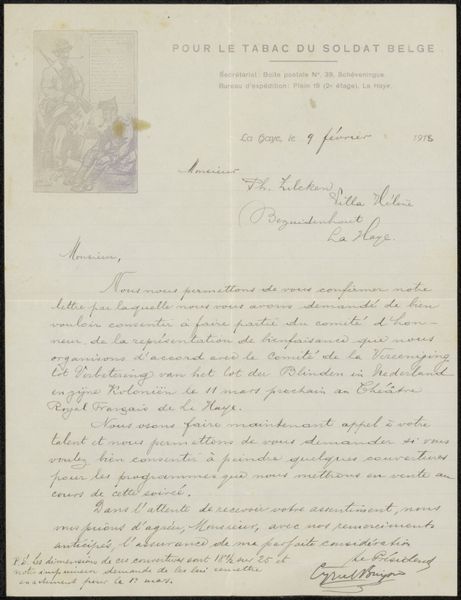 POUR LE TABAC DU SOLDAT BELGE
Secrétariat: Boîte postale No. 39, Schéveningue.
Bureau d'expédition: Plein 19 (2e étage), La Haye.
La Haye, le 9 février 1918
Monsieur
Ph. Zilcken
Villa Hélène
Bezuidenhout
La Haye.
Monsieur,
Nous nous permettons de vous confirmer notre
lettre par laquelle nous vous avons demandé de bien
vouloir consentir à faire partie du comité d'hon-
neur de la représentation de bienfaisance que nous
organisons d'accord avec le Comité de la Vereeniging
tot Verbetering van het lot der Blinden in Nederland
en zijne Koloniën le 11 mars prochain au Théâtre
Royal Français de La Haye.
Nous osons faire maintenant appel à votre
talent et nous permettons de vous demander si vous
voulez bien consentir à peindre quelques couvertures
pour les programmes que nous mettrons en vente au
cours de cette soirée.
Dans l'attente de recevoir votre assentiment, nous
vous prions d'agréer, Monsieur, avec nos remerciments
anticipés, l'assurance de ma parfaite considération
Le Président
P.S. Les dimensions de ces couvertures sont 18½ sur 25 et
notre imprimeur demande de les lui remettre
pour le 1er mars.